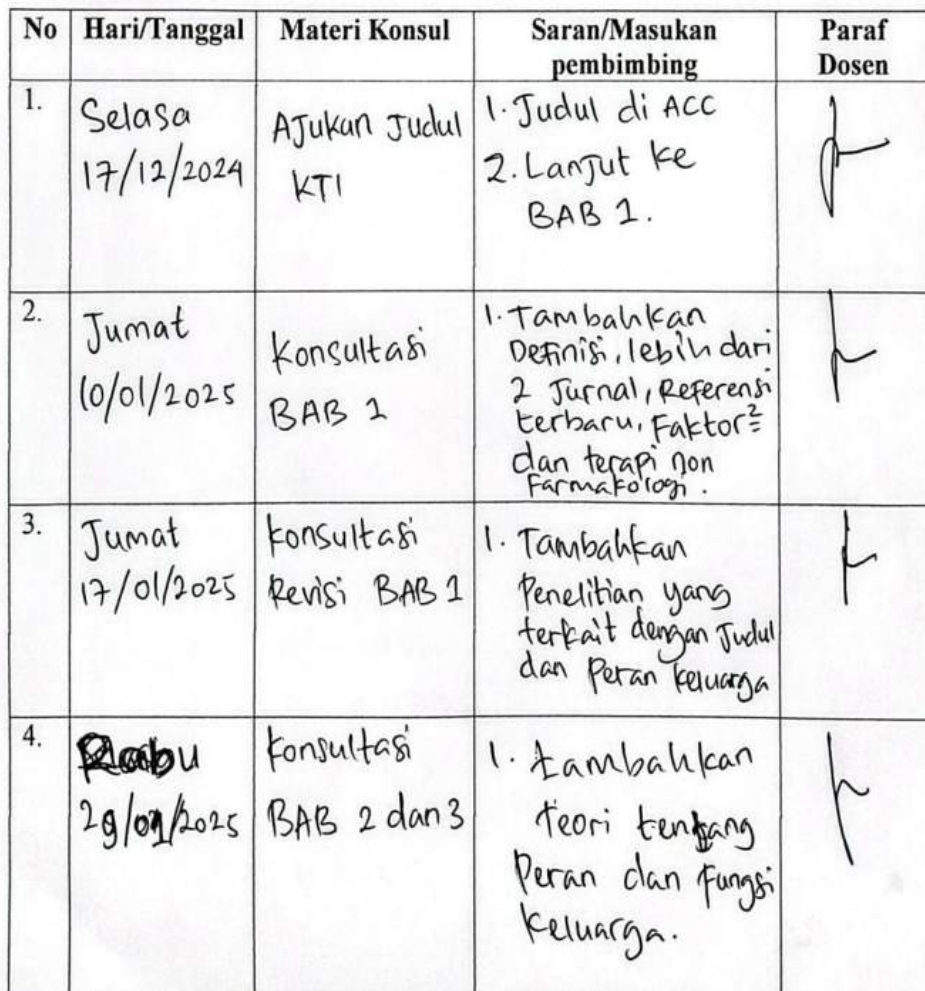 No Hari/Tanggal Materi Konsul Saran/Masukan pembimbing Paraf Dosen
1.
Selasa
17/12/2024
AJukan Judul
KTI
1. Judul di ACC
2. Lanjut ke
BAB 1.
2.
Jumat
10/01/2025
Konsultasi
BAB 1
1. Tambahkan
Definisi, lebih dari
2 Jurnal, Referensi
terbaru, Faktor²
dan terapi non
Farmakologi.
3.
Jumat
17/01/2025
konsultasi
Revisi BAB 1
1. Tambahkan
Penelitian yang
terkait dengan Judul
dan Peran keluarga
4.
Rabu
29/01/2025
konsultasi
BAB 2 dan 3
1. tambahkan
teori tentang
Peran dan Fungsi
Keluarga.